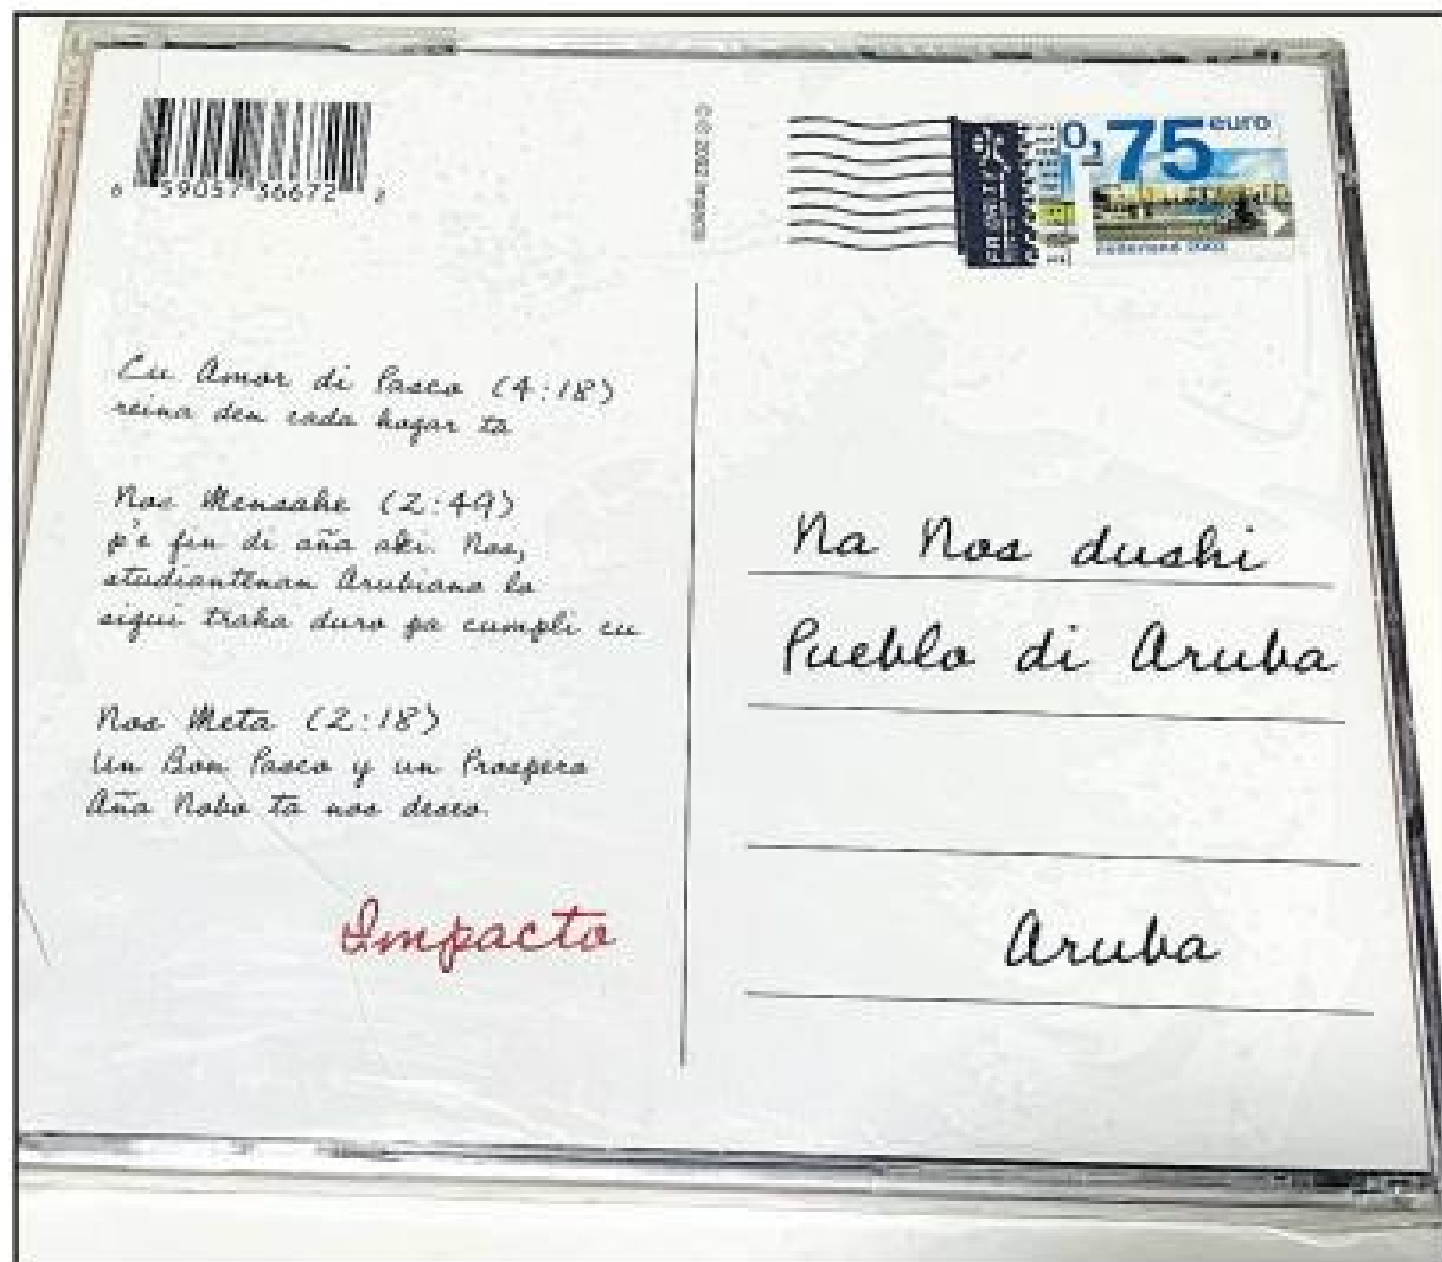 59057 56672
0,75 euro
nederland 2002
Cu Amor di Pasco (4:18)
reina den cada hogar ta
Nos Mensahe (2:49)
p'e fin di aña aki. Nos,
studiantenan Arubiano lo
sigui traha duro pa cumpli cu
Nos Meta (2:18)
Un Bon Pasco y un Prospero
Aña Nobo ta nos deseo.
Impacto
Na Nos dushi
Pueblo di Aruba
Aruba